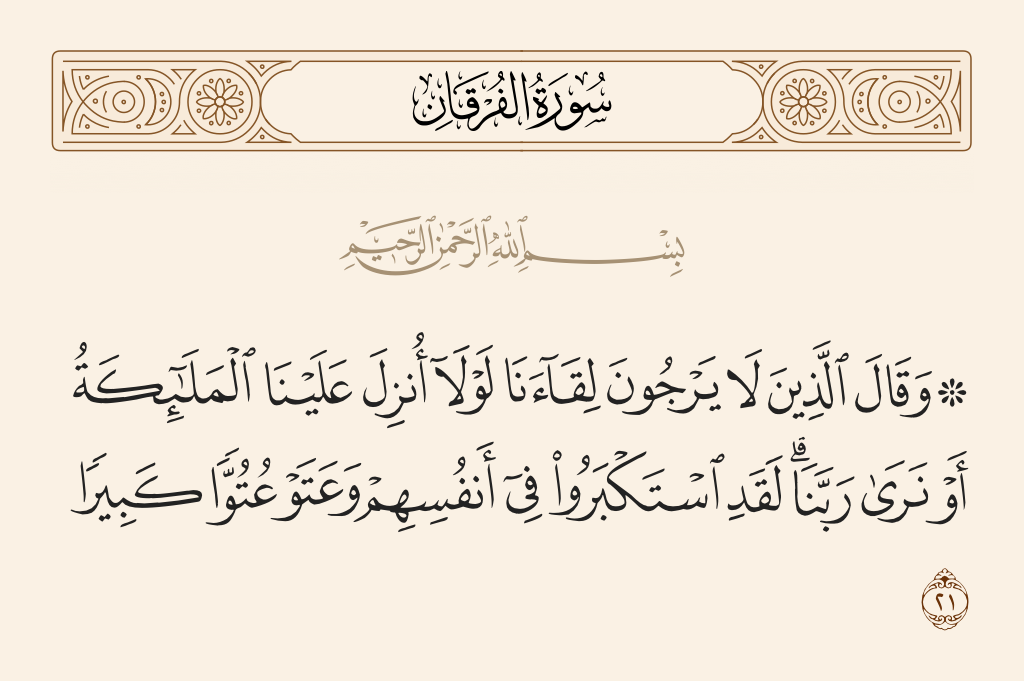 سُورَةُ الفُرْقَانِ
بِسْمِ ٱللَّهِ ٱلرَّحْمَٰنِ ٱلرَّحِيمِ
۞ وَقَالَ ٱلَّذِينَ لَا يَرْجُونَ لِقَآءَنَا لَوْلَآ أُنزِلَ عَلَيْنَا ٱلْمَلَٰٓئِكَةُ
أَوْ نَرَىٰ رَبَّنَا ۗ لَقَدِ ٱسْتَكْبَرُوا۟ فِىٓ أَنفُسِهِمْ وَعَتَوْ عُتُوًّا كَبِيرًا
٢١